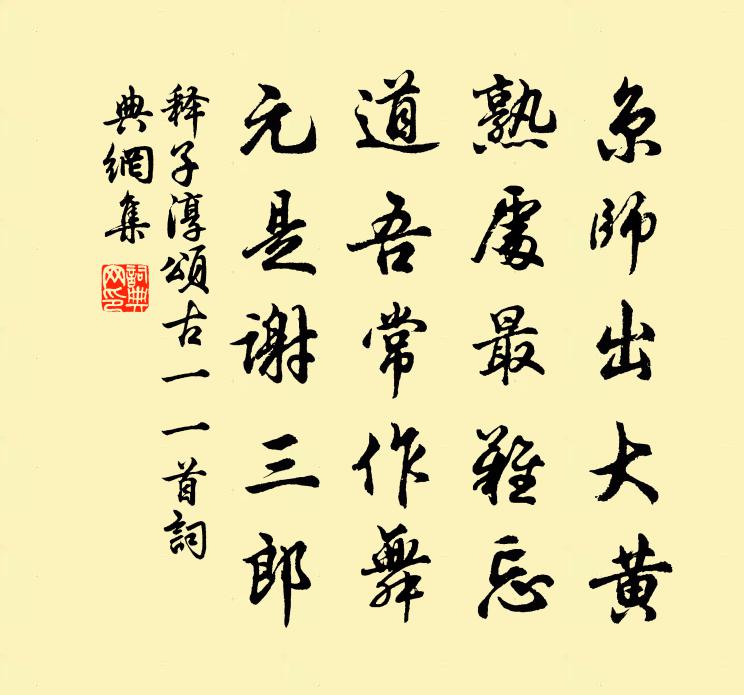 京師出大黄
熟處最難忘
道吾常作舞
元是謝三郎
释子淳頌古一一首詞
典網集
詞典
网印